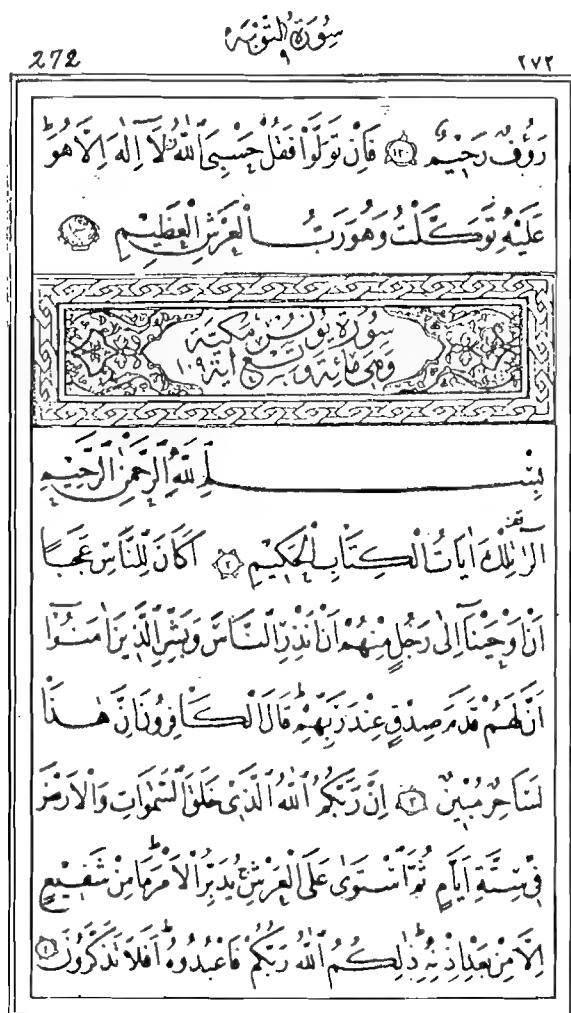 سُورَةُ التَّوْبَةِ
٩
272 ٢٧٢
رَؤُفٌ رَحِيمٌ ﴿١٣٠﴾ فَاِنْ تَوَلَّوْا فَقُلْ حَسْبِىَ اللّٰهُ لَٓا اِلٰهَ اِلَّا هُوَ ط
عَلَيْهِ تَوَكَّلْتُ وَهُوَ رَبُّ الْعَرْشِ الْعَظِيمِ
سُورَةُ يُونُسَ مَكِّيَّة
وَهِىَ مِائَة وَتِسْع اٰيَة ١٠٩
بِسْمِ اللّٰهِ الرَّحْمٰنِ الرَّحِيمِ
الٓرٰ تِلْكَ اٰيَاتُ الْكِتَابِ الْحَكِيمِ ﴿٢﴾ اَكَانَ لِلنَّاسِ عَجَبًا
اَنْ اَوْحَيْنَٓا اِلٰى رَجُلٍ مِنْهُمْ اَنْ اَنْذِرِ النَّاسَ وَبَشِّرِ الَّذِينَ اٰمَنُٓوا
اَنَّ لَهُمْ قَدَمَ صِدْقٍ عِنْدَ رَبِّهِمْ ط قَالَ الْكَافِرُونَ اِنَّ هٰذَا
لَسَاحِرٌ مُبِينٌ ﴿٣﴾ اِنَّ رَبَّكُمُ اللّٰهُ الَّذِى خَلَقَ السَّمٰوَاتِ وَالْاَرْضَ
فِى سِتَّةِ اَيَّامٍ ثُمَّ اسْتَوٰى عَلَى الْعَرْشِ يُدَبِّرُ الْاَمْرَ ط مَا مِنْ شَفِيعٍ
اِلَّا مِنْ بَعْدِ اِذْنِهِ ط ذٰلِكُمُ اللّٰهُ رَبُّكُمْ فَاعْبُدُوهُ ط اَفَلَا تَذَكَّرُونَ ﴿٤﴾